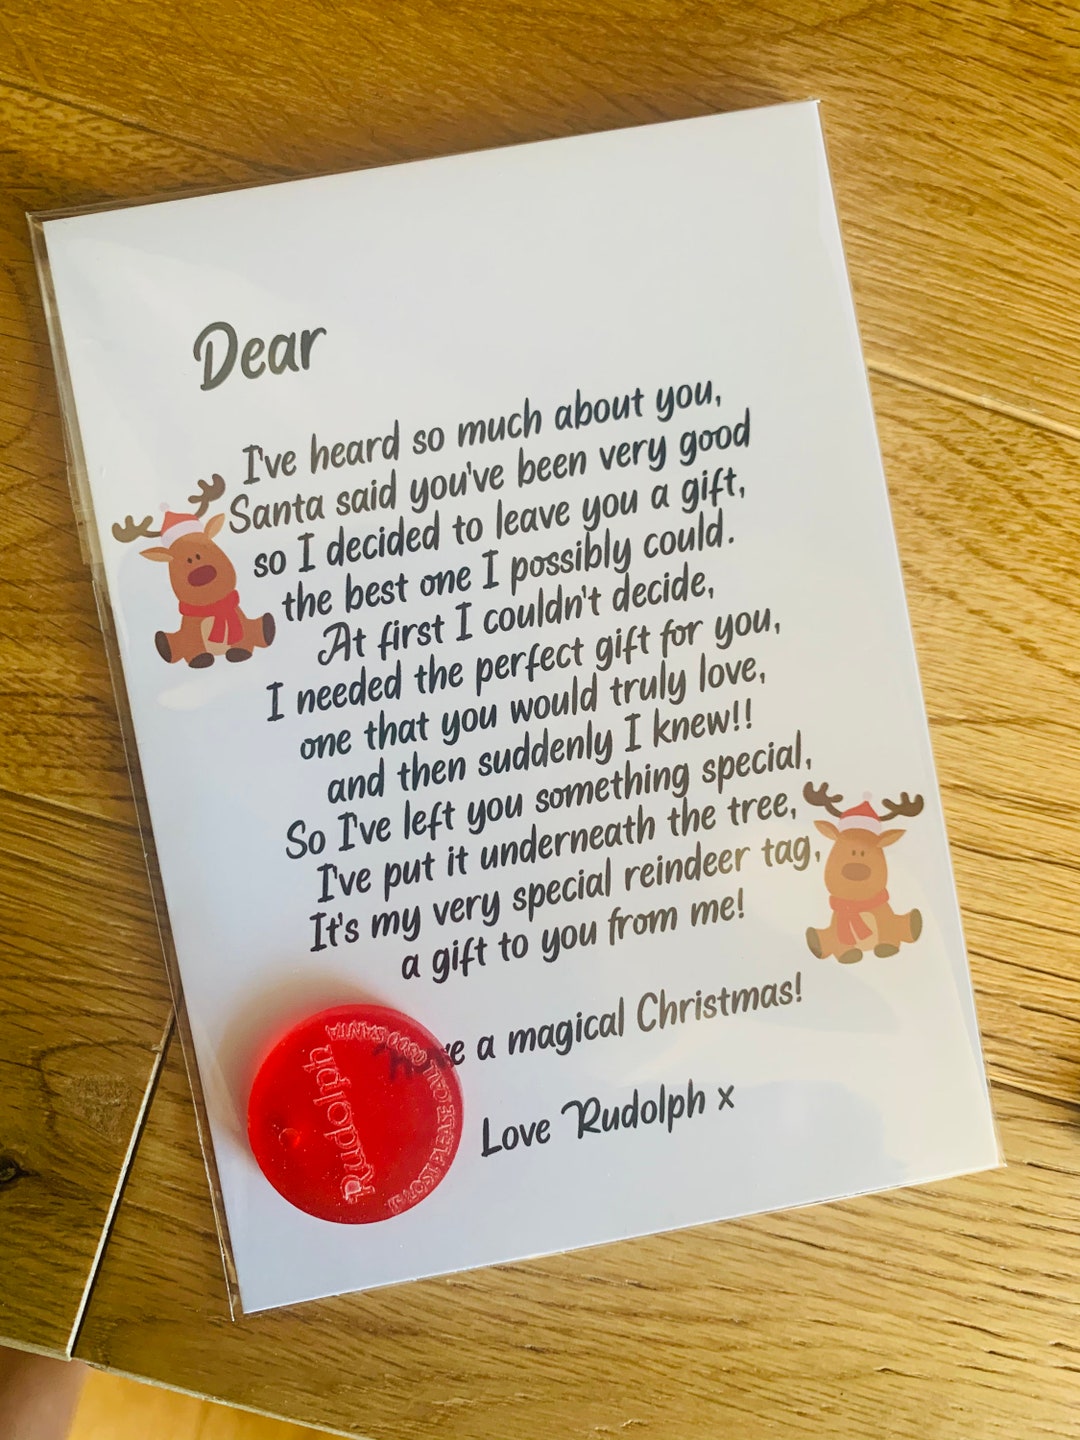 Dear
I've heard so much about you,
Santa said you've been very good
so I decided to leave you a gift,
the best one I possibly could.
At first I couldn't decide,
I needed the perfect gift for you,
one that you would truly love,
and then suddenly I knew!!
So I've left you something special,
I've put it underneath the tree,
It's my very special reindeer tag,
a gift to you from me!
Have a magical Christmas!
Love Rudolph x
Rudolph
IF LOST PLEASE CALL
SANTA